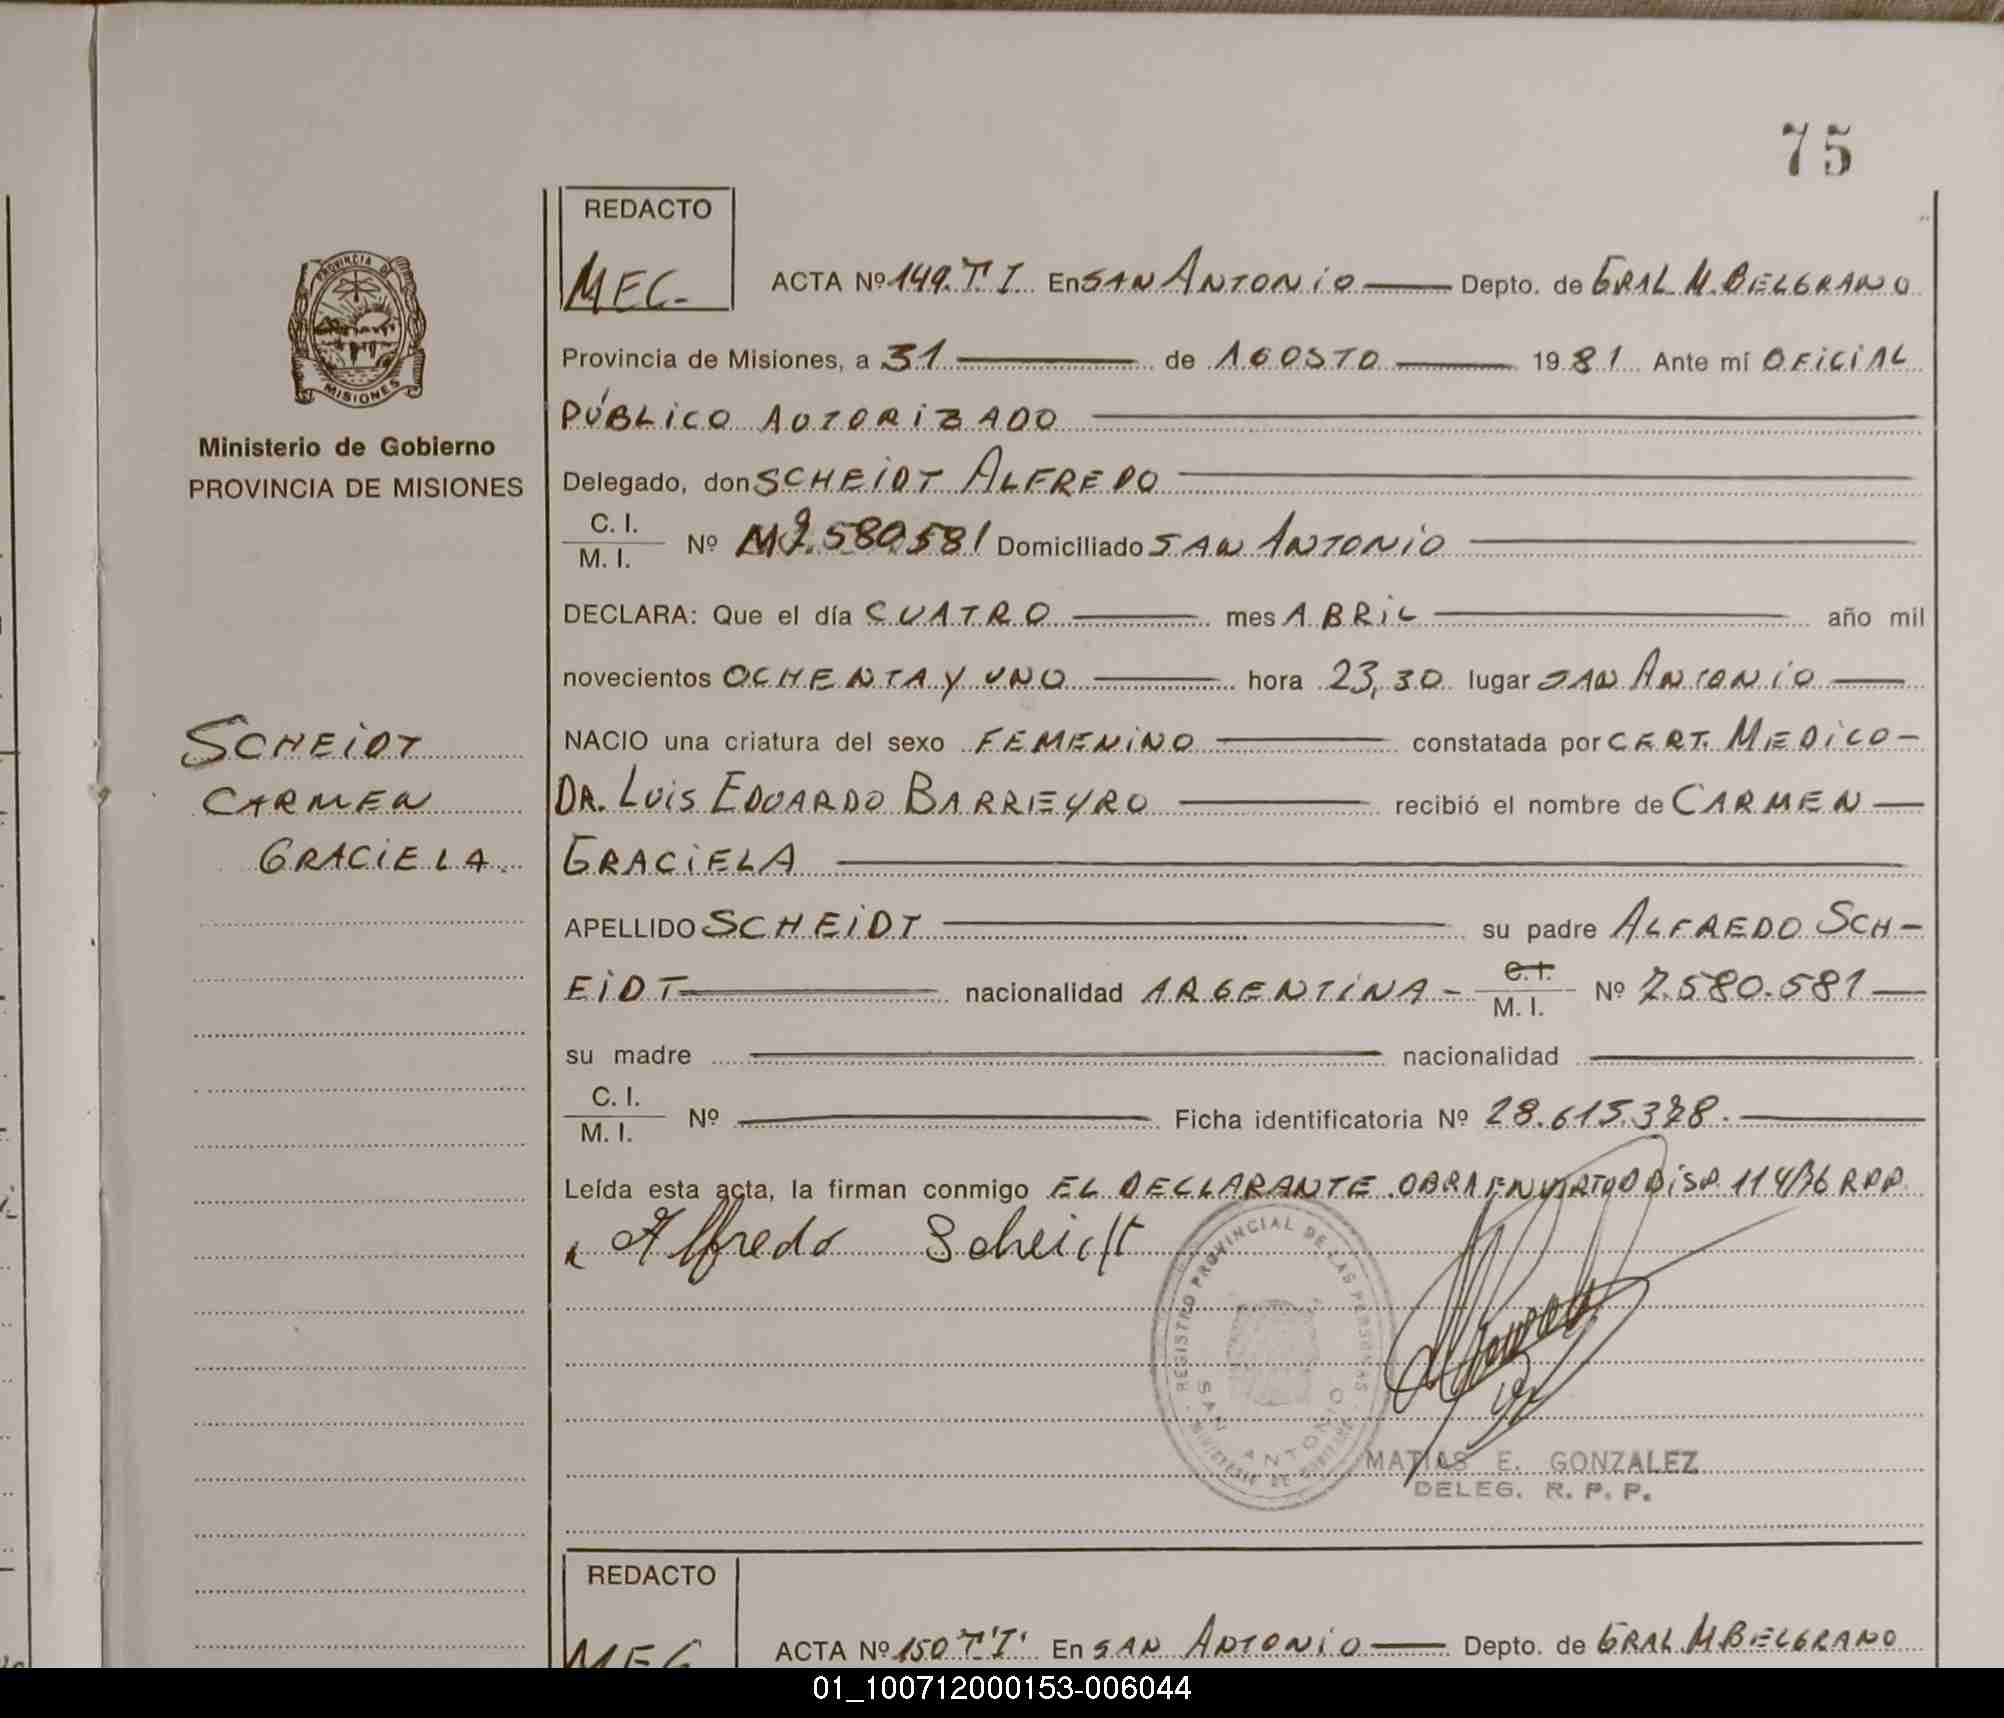 75
REDACTO
MEC.
ACTA Nº 149.T.I. En SAN ANTONIO Depto. de GRAL M. BELGRANO
PROVINCIA DE MISIONES
Provincia de Misiones, a 31 de AGOSTO 1981 Ante mí OFICIAL
PÚBLICO AUTORIZADO
Ministerio de Gobierno
PROVINCIA DE MISIONES
Delegado, don SCHEIDT ALFREDO
C. I.
M. I. Nº M7.580.581 Domiciliado SAN ANTONIO
DECLARA: Que el día CUATRO mes ABRIL año mil
novecientos OCHENTA Y UNO hora 23,30 lugar SAN ANTONIO
SCHEIDT
CARMEN
GRACIELA
NACIO una criatura del sexo FEMENINO constatada por CERT. MEDICO-
DR. LUIS EDUARDO BARRIEYRO recibió el nombre de CARMEN
GRACIELA
APELLIDO SCHEIDT su padre ALFREDO SCH-
EIDT nacionalidad ARGENTINA- C.I.
M. I. Nº 7.580.581
su madre nacionalidad
C. I.
M. I. Nº Ficha identificatoria Nº 28.615.378.
Leída esta acta, la firman conmigo EL DECLARANTE. OBRA EN VIRTUD DISP. 114/76 RPP
Alfredo Scheidt
REGISTRO PROVINCIAL DE LAS PERSONAS
SAN ANTONIO
MINISTERIO DE GOBIERNO
MATIAS E. GONZALEZ
DELEG. R. P. P.
REDACTO
MEC
ACTA Nº 150 T'I' En SAN ANTONIO Depto. de GRAL. M. BELGRANO
01_100712000153-006044